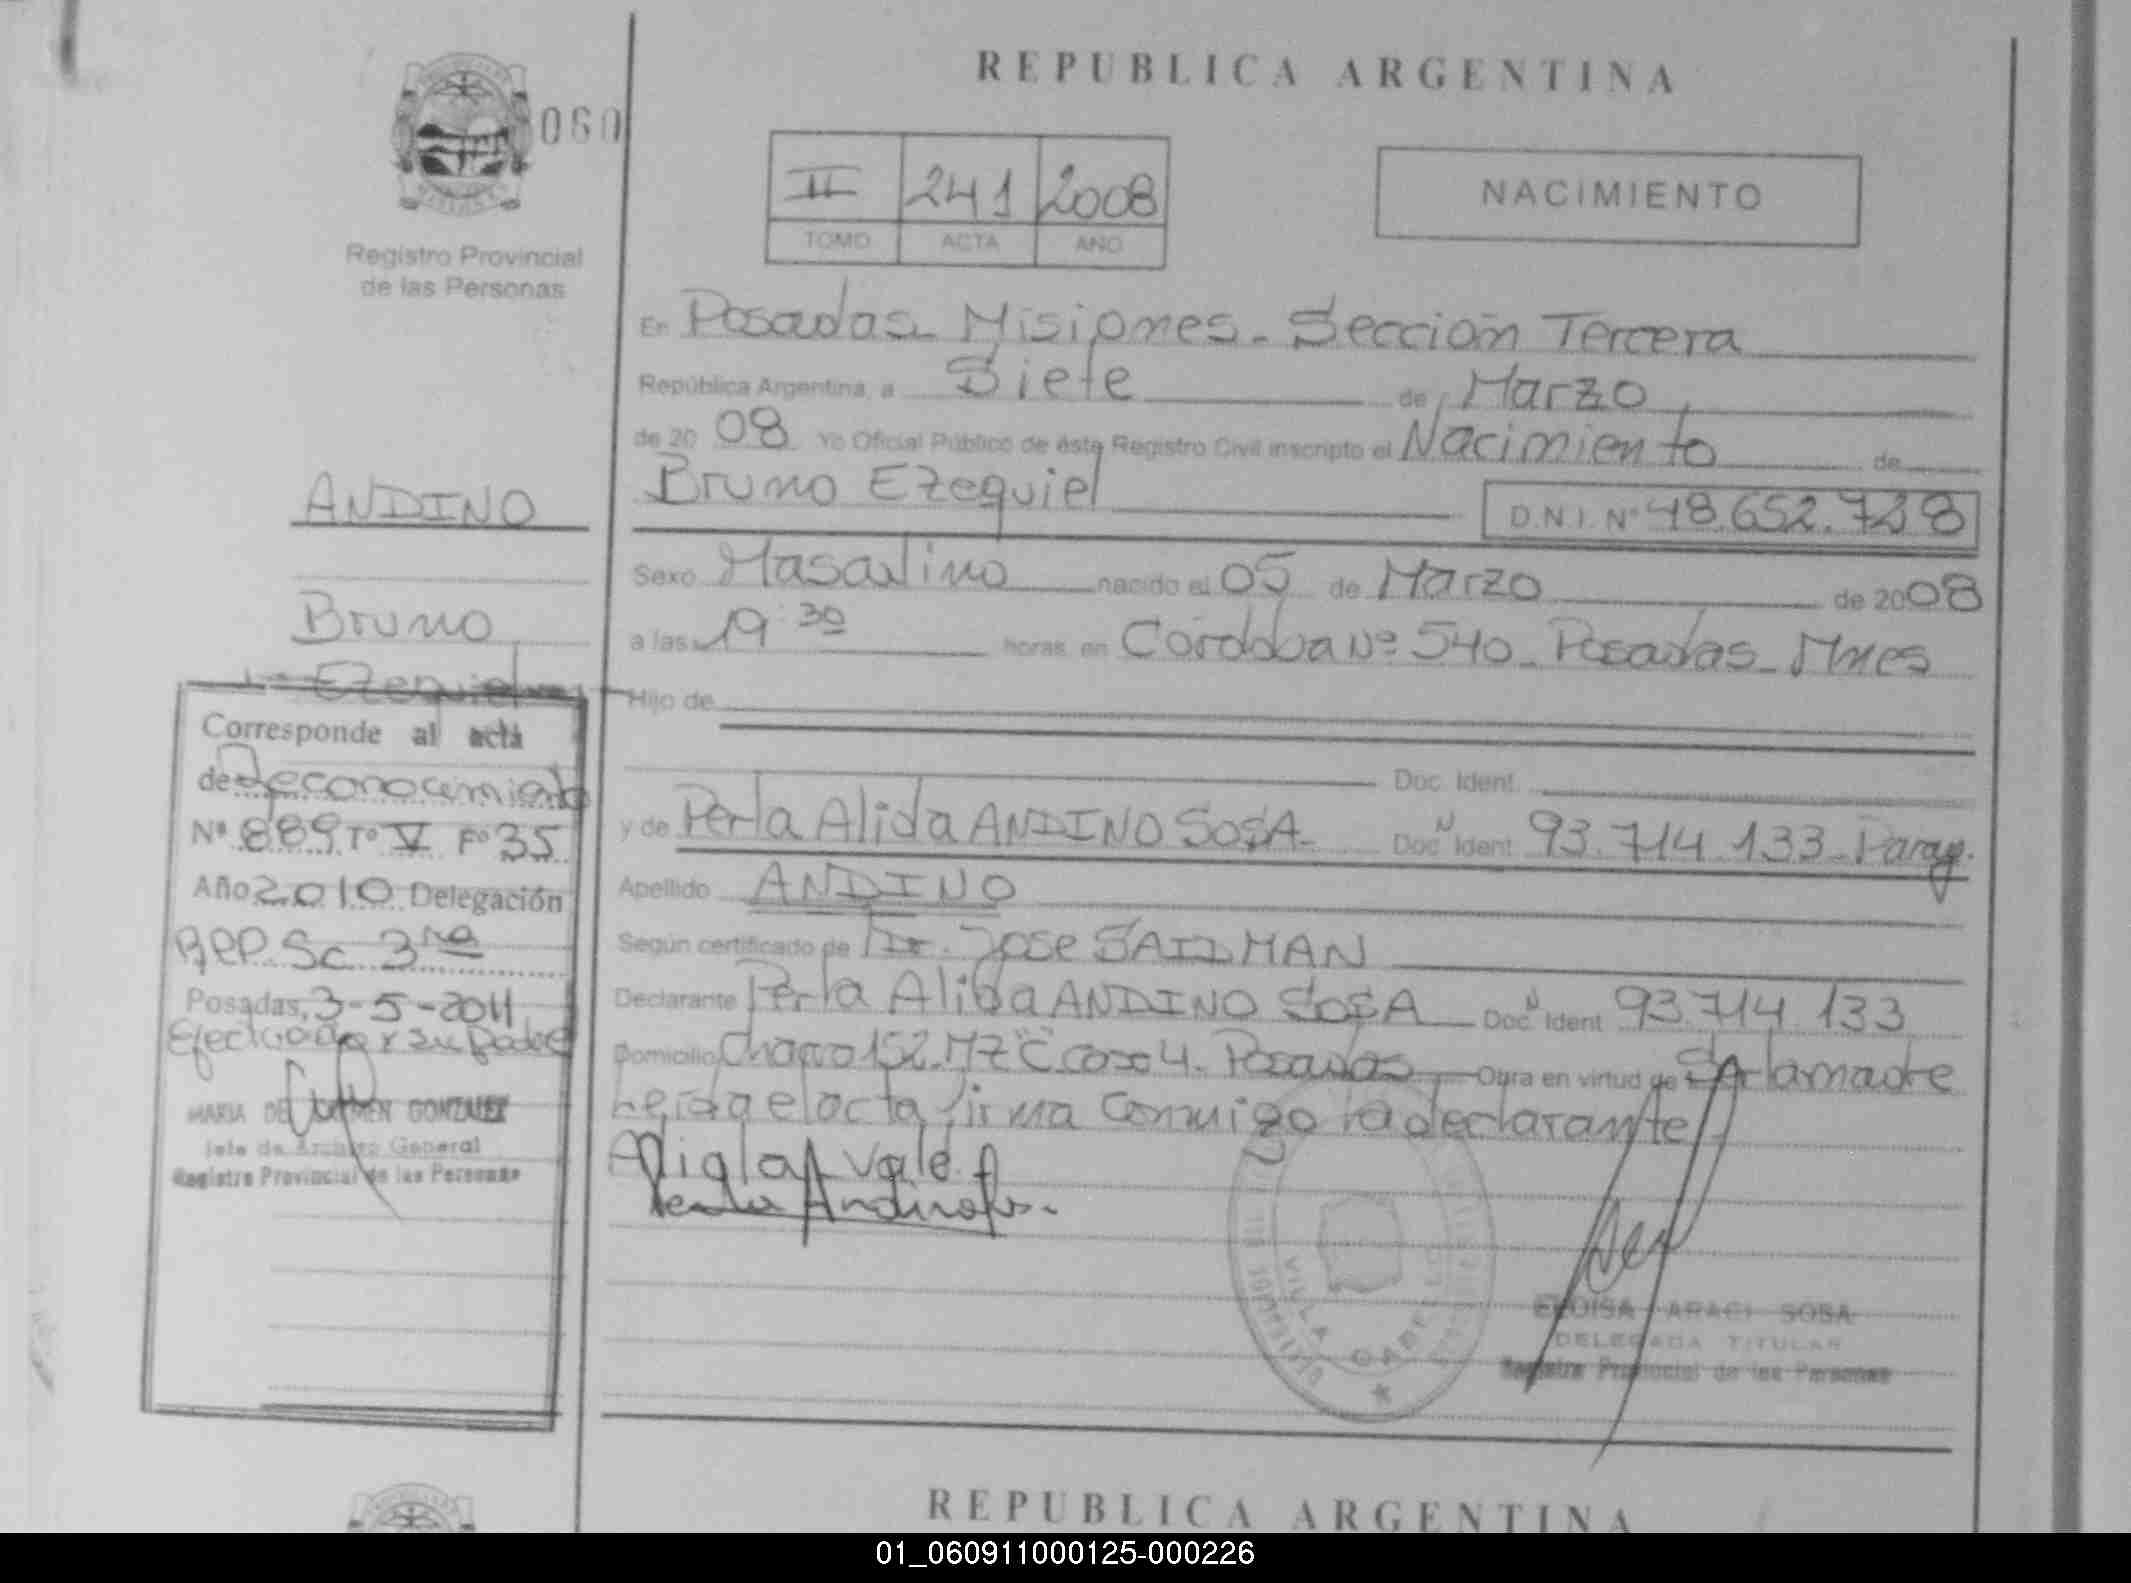 REPUBLICA ARGENTINA
060
II 241 2008
TOMO ACTA AÑO
NACIMIENTO
Registro Provincial
de las Personas
En Posadas Misiones - Sección Tercera
República Argentina, a Siete de Marzo
de 2008 Yo Oficial Público de ésta Registro Civil inscripto el Nacimiento de
Bruno Ezequiel D.N.I. Nº 48.652.728
Sexo Masculino nacido el 05 de Marzo de 2008
a las 19:30 horas en Córdoba Nº 540 - Posadas - Mnes
Hijo de
Doc. Ident.
y de Perla Alida ANDINO SOSA - Doc. N Ident 93.714.133 - Parag.
Apellido ANDINO
Según certificado de Dr. Jose SAIDMAN
Declarante Perla Alida ANDINO SOSA Doc. N Ident 93.714.133
Domicilio Chacra 152 - MZ "C" casa 4 - Posadas Obra en virtud de Ser la madre
Leida el acta firma conmigo la declarante
Vale
Perla Andino
ANDINO
Bruno
Ezequiel
Corresponde al acta
de Reconocimiento
Nº 889 Tº V Fº 35
Año 2010 Delegación
RPP. Sc 3ra
Posadas, 3-5-2011
Efectuado por su padre
MARIA DEL CARMEN GONZALEZ
Jefe de Archivo General
Registro Provincial de las Personas
VILLA CABELLO
ELOISA ARACI SOSA
DELEGADA TITULAR
Registro Provincial de las Personas
REPUBLICA ARGENTINA
01_060911000125-000226